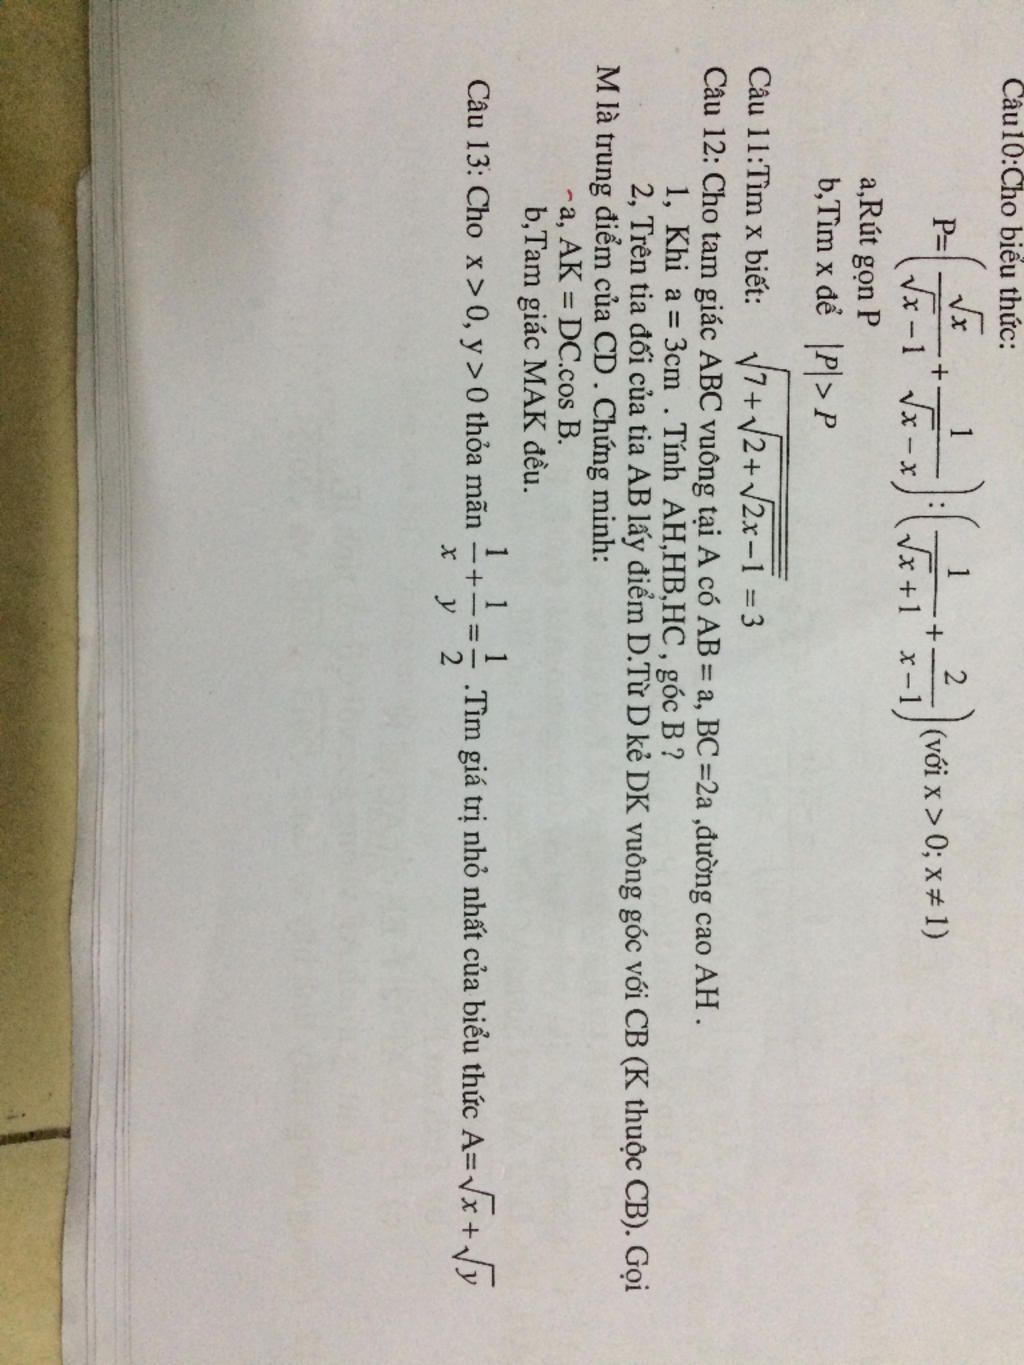 Câu10:Cho biểu thức:
P=(√x/(√x−1) + 1/(√x−x)) : (1/(√x+1) + 2/(x−1)) (với x > 0; x ≠ 1)
a,Rút gọn P
b,Tìm x để |P| > P
Câu 11:Tìm x biết: √(7+√(2+√(2x−1))) = 3
Câu 12: Cho tam giác ABC vuông tại A có AB = a, BC =2a ,đường cao AH .
1, Khi a = 3cm . Tính AH,HB,HC , góc B ?
2, Trên tia đối của tia AB lấy điểm D.Từ D kẻ DK vuông góc với CB (K thuộc CB). Gọi
M là trung điểm của CD . Chứng minh:
a, AK = DC.cos B.
b,Tam giác MAK đều.
Câu 13: Cho x > 0, y > 0 thỏa mãn 1/x + 1/y = 1/2 .Tìm giá trị nhỏ nhất của biểu thức A=√x + √y